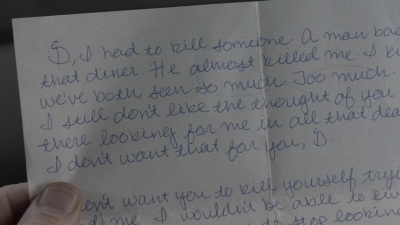 D, I had to kill someone. A man bac
that diner. He almost killed me. I k
we've both seen so much. Too much.
I still don't like the thought of you
there looking for me in all that dea
I don't want that for you, D.
don't want you to kill yourself tryi
me. I wouldn't be able to
to stop lookin